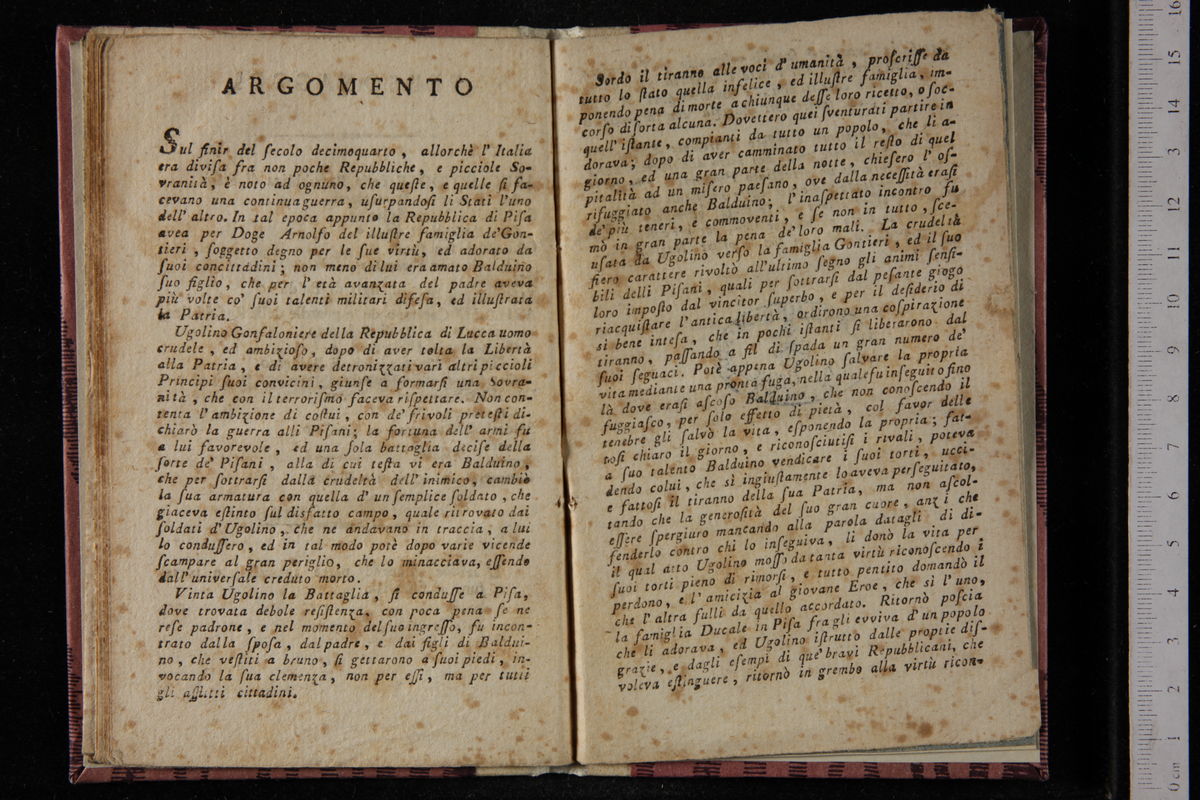 ARGOMENTO
Sul finir del ſecolo decimoquarto, allorchè l'Italia
era diviſa fra non poche Repubbliche, e picciole So-
vranità, è noto ad ognuno, che queſte, e quelle ſi fa-
cevano una continua guerra, uſurpandoſi li Stati l'uno
dell' altro. In tal epoca appunto la Repubblica di Piſa
avea per Doge Arnolfo del illuſtre famiglia de'Gon-
tieri, ſoggetto degno per le ſue virtù, ed adorato da
ſuoi concittadini; non meno di lui era amato Balduino
ſuo figlio, che per l'età avanzata del padre aveva
più volte co' ſuoi talenti militari difeſa, ed illuſtrata
la Patria.
Ugolino Gonfaloniere della Repubblica di Lucca uomo
crudele, ed ambizioſo, dopo di aver tolta la Libertà
alla Patria, e di avere detronizzati vari altri piccioli
Principi ſuoi convicini, giunſe a formarſi una Sovra-
nità, che con il terroriſmo faceva riſpettare. Non con-
tenta l'ambizione di coſtui, con de' frivoli preteſti di-
chiarò la guerra alli Piſani; la fortuna dell' armi fu
a lui favorevole, ed una ſola battaglia deciſe della
ſorte de' Piſani, alla di cui teſta vi era Balduino,
che per ſottrarſi dalla crudeltà dell'inimico, cambiò
la ſua armatura con quella d'un ſemplice ſoldato, che
giaceva eſtinto ſul disfatto campo, quale ritrovato dai
ſoldati d'Ugolino, che ne andavano in traccia, a lui
lo conduſſero, ed in tal modo potè dopo varie vicende
ſcampare al gran periglio, che lo minacciava, eſſendo
dall'univerſale creduto morto.
Vinta Ugolino la Battaglia, ſi conduſſe a Piſa,
dove trovata debole reſiſtenza, con poca pena ſe ne
reſe padrone, e nel momento del ſuo ingreſſo, fu incon-
trato dalla ſpoſa, dal padre, e dai figli di Baldui-
no, che veſtiti a bruno, ſi gettarono a ſuoi piedi, in-
vocando la ſua clemenza, non per eſſi, ma per tutti
gli afflitti cittadini.
Sordo il tiranno alle voci d'umanità, proſcriſſe da
tutto lo ſtato quella infelice, ed illuſtre famiglia, im-
ponendo pena di morte a chiunque deſſe loro ricetto, o ſoc-
corſo di ſorta alcuna. Dovettero quei ſventurati partire in
quell' iſtante, compianti da tutto un popolo, che li a-
dorava; dopo di aver camminato tutto il reſto di quel
giorno, ed una gran parte della notte, chieſero l'oſ-
pitalità ad un miſero paeſano, ove dalla neceſſità eraſi
rifuggiato anche Balduino; l'inaſpettato incontro fu
de' più teneri, e commoventi, e ſe non in tutto, ſce-
mò in gran parte la pena de' loro mali. La crudeltà
uſata da Ugolino verſo la famiglia Gontieri, ed il ſuo
fiero carattere rivoltò all'ultimo ſegno gli animi ſenſi-
bili delli Piſani, quali per ſottrarſi dal peſante giogo
loro impoſto dal vincitor ſuperbo, e per il deſiderio di
riacquiſtare l'antica libertà, ordirono una coſpirazione
sì bene inteſa, che in pochi iſtanti ſi liberarono dal
tiranno, paſſando a fil di ſpada un gran numero de'
ſuoi ſeguaci. Potè appena Ugolino ſalvare la propria
vita mediante una pronta fuga, nella quale fu inſeguito fino
là dove eraſi aſcoſo Balduino, che non conoſcendo il
fuggiaſco, per ſolo effetto di pietà, col favor delle
tenebre gli ſalvò la vita, eſponendo la propria; fat-
toſi chiaro il giorno, e riconoſciutiſi i rivali, poteva
a ſuo talento Balduino vendicare i ſuoi torti, ucci-
dendo colui, che sì ingiuſtamente lo aveva perſeguitato,
e fattoſi il tiranno della ſua Patria, ma non aſcol-
tando che la generoſità del ſuo gran cuore, anzi che
eſſere ſpergiuro mancando alla parola datagli di di-
fenderlo contro chi lo inſeguiva, li donò la vita per
il qual atto Ugolino moſſo da tanta virtù riconoſcendo i
ſuoi torti pieno di rimorſi, e tutto pentito domandò il
perdono, e l'amicizia al giovane Eroe, che sì l'uno,
che l'altra fulli da quello accordato. Ritornò poſcia
la famiglia Ducale in Piſa fra gli evviva d'un popolo
che li adorava, ed Ugolino iſtrutto dalle proprie diſ-
grazie, e dagli eſempi di que' bravi Repubblicani, che
voleva eſtinguere, ritornò in grembo alla virtù ricon-
0 cm 1 2 3 4 5 6 7 8 9 10 11 12 3 14 15 16